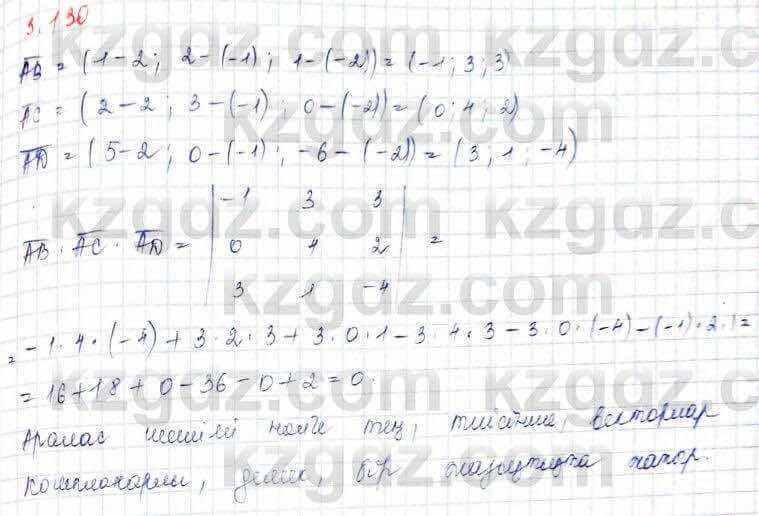 3.130
AB = (1-2; 2-(-1); 1-(-2)) = (-1; 3; 3)
AC = (2-2; 3-(-1); 0-(-2)) = (0; 4; 2)
AD = (5-2; 0-(-1); -6-(-2)) = (3; 1; -4)
AB · AC · AD = | -1 3 3 |
| 0 4 2 | =
| 3 1 -4 |
= -1·4·(-4) + 3·2·3 + 3·0·1 - 3·4·3 - 3·0·(-4) - (-1)·2·1 =
= 16+18+0-36-0+2=0.
Аралас нөлге тең, векторлар
компланарлы, демек, бір жазықтықта жатыр.
kzgdz.com